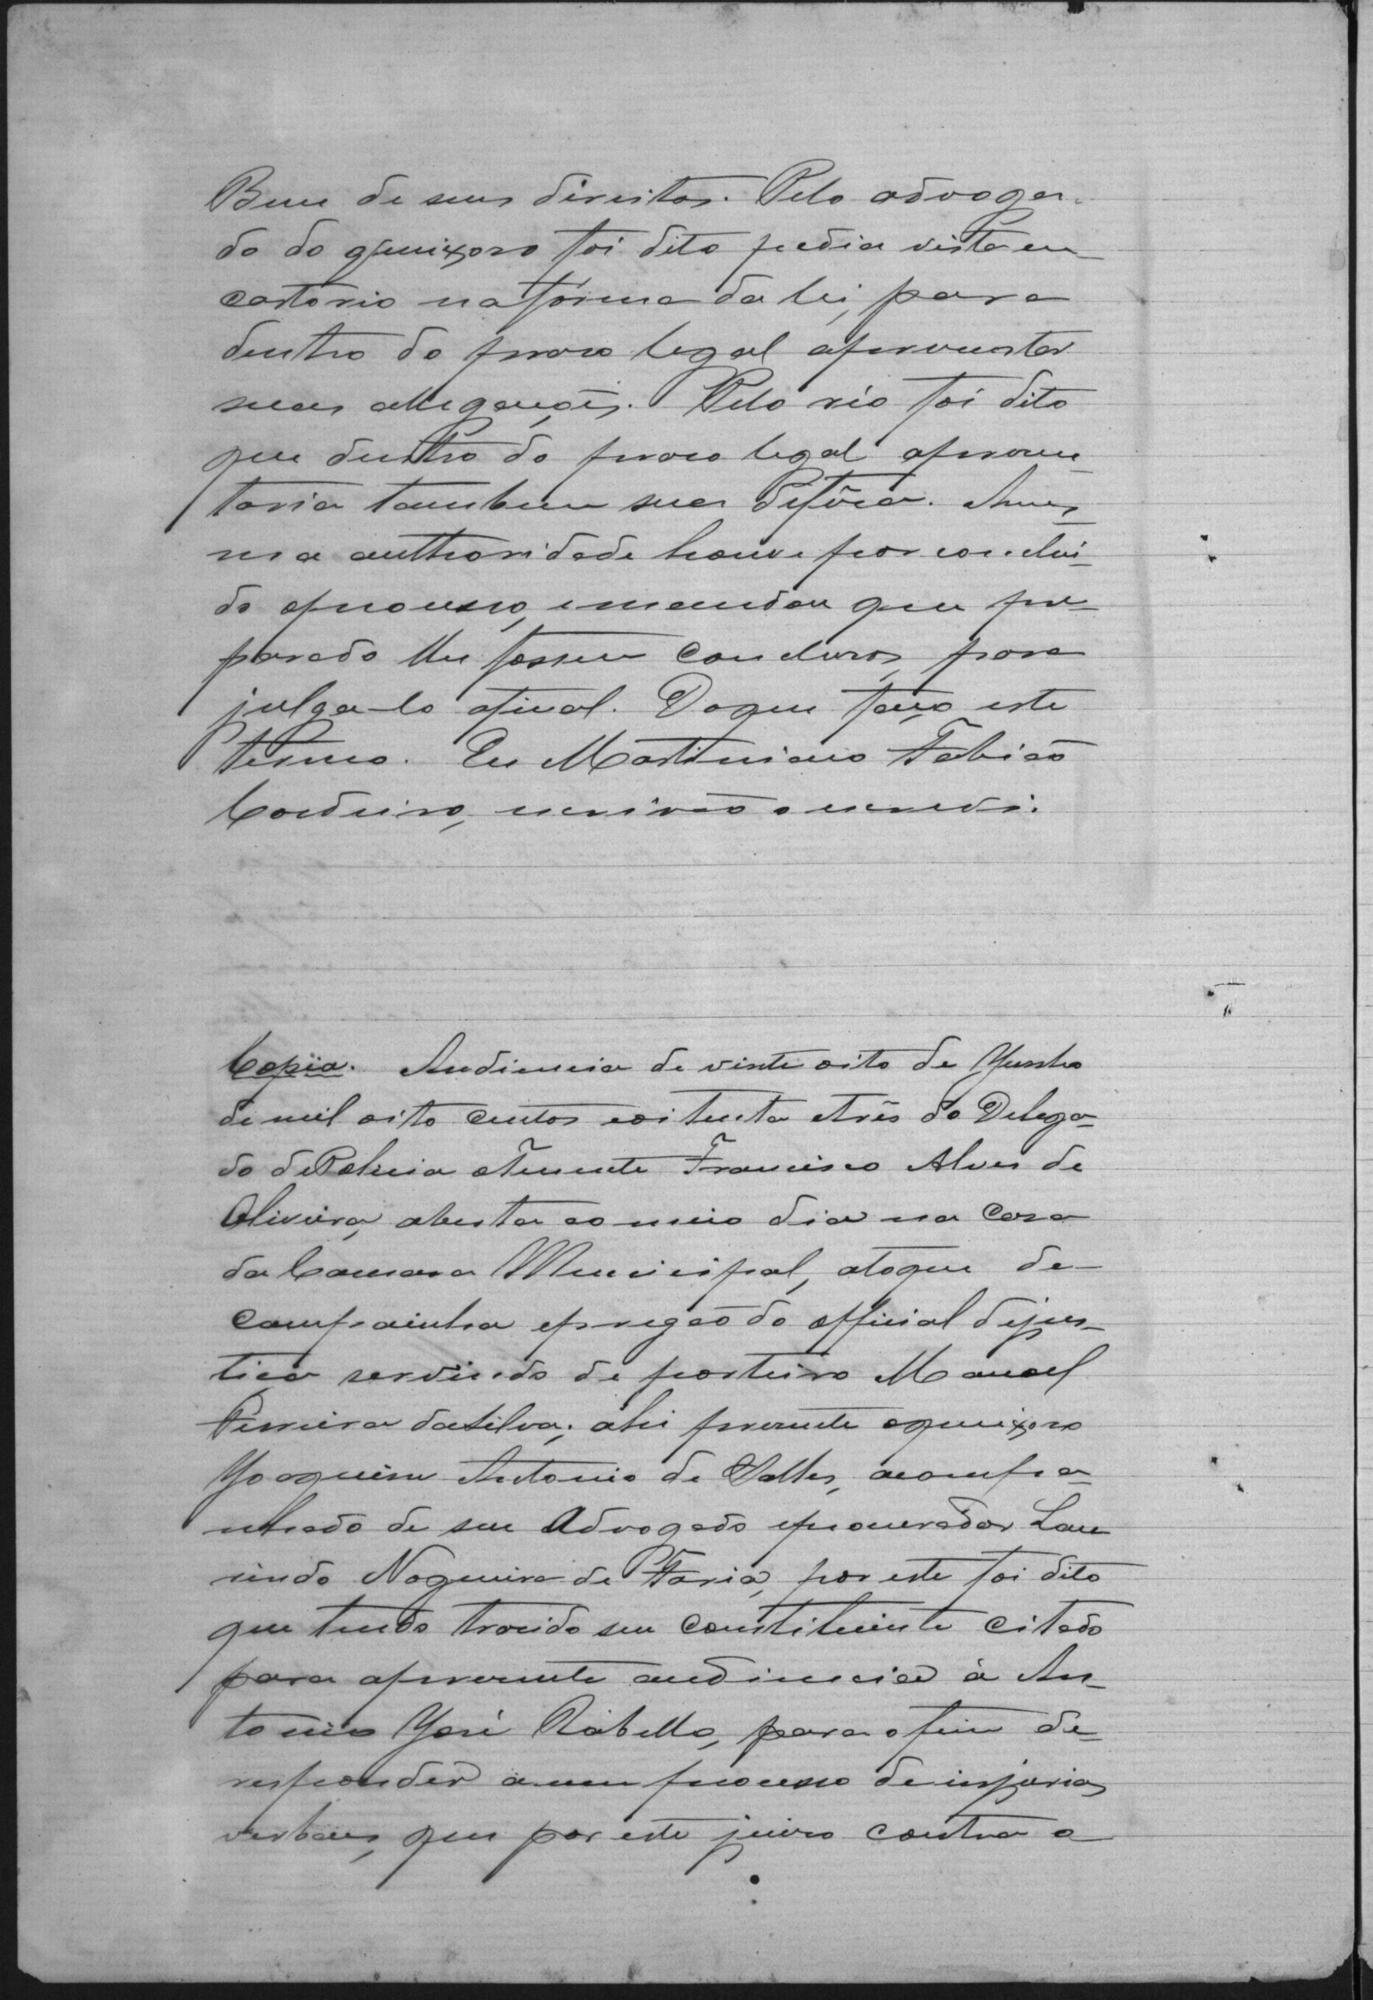 Bem de seus direitos. Pelo advoga-
do do queixoso foi dito pedia vista em
cartorio na fórma da lei, para
dentro do praso legal apresentar
suas allegações. Pelo réo foi dito
que dentro do praso legal apresen
taria tambem sua defêsa. A mes-
ma authoridade houve por conclui-
do o processo, e mandou que pre-
parado lhe fossem conclusos, para
julga-lo afinal. Do que faço este
termo. Eu Martiniano Fabião
Cordeiro, escrivão o escrevi.
Copia. Audiencia de vinte oito de Junho
de mil oito centos e oitenta e três do Delega-
do de Policia o Tenente Francisco Alves de
Oliveira, aberta ao meio dia na Casa
da Camara Municipal, a toque de
campainha e pregão do official de jus-
tiça servindo de porteiro Manoel
Ferreira da Silva; ahi presente o queixoso
Joaquim Antonio de Salles, acompa-
nhado de seu Advogado e procurador Lau
rindo Nogueira de Faria, por este foi dito
que tendo trazido seu constituinte citado
para a presente audiencia à An-
tonio José Rabello, para o fim de
responder a um processo de injurias
verbaes, que por este juizo contra o